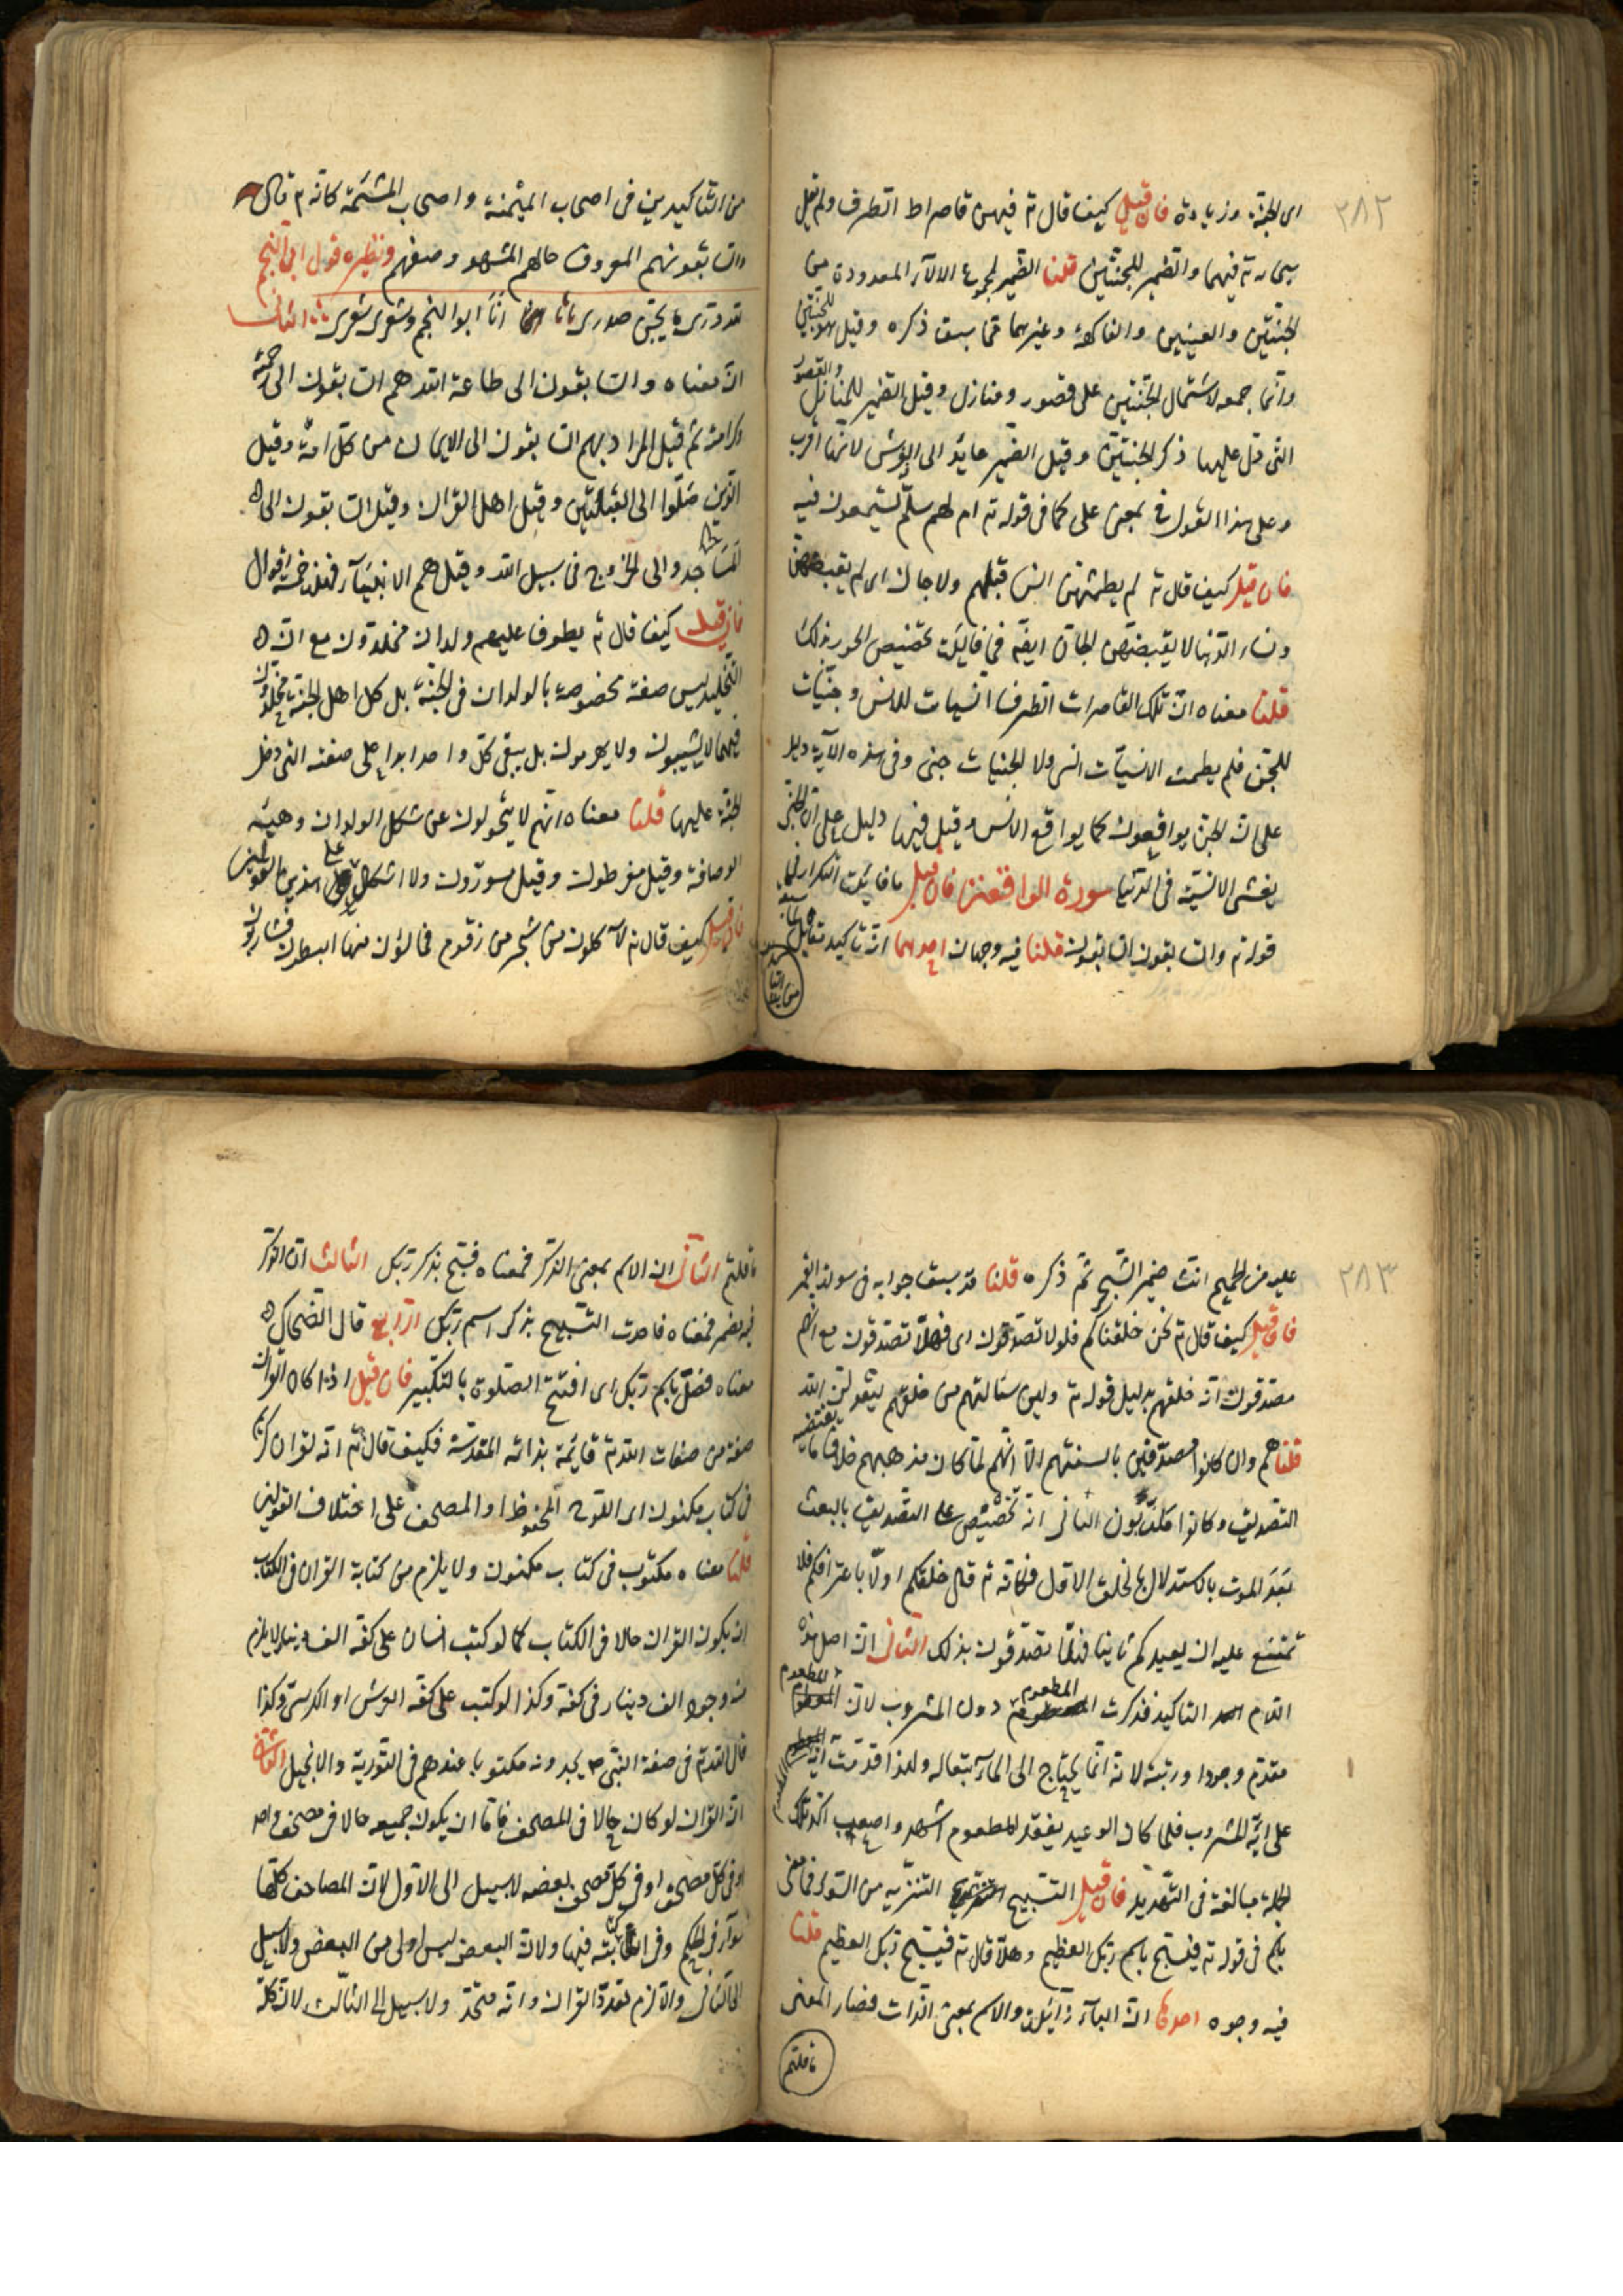 ٢٨٢
اى الجنة وزيادة فان قيل كيف قال تم فيهن قاصرات الطرف ولم يقل
سبحانه تم فيهما والضمير للجنتين قلنا الضمير لمجموع الآلاء المعدودة من
الجنتين والعينين والفاكهة وغيرهما مما سبق ذكره وقيل هو للجنتين
وانما جمعه لاشتمال الجنتين على قصور ومنازل وقيل الضمير للمنازل والقصور
التى دل عليها ذكر الجنتين وقيل الضمير عايد الى الفرش لانها اقرب
وعلى هذا القول فى بمعنى على كما فى قوله تم ام لهم سلم يستمعون فيه
فان قيل كيف قال تم لم يطمثهن انس قبلهم ولا جان اى لم يفتضهن
ونساء الدنيا لا يفتضهن الجان ايضا فما فائدة تخصيص الحور بذلك
قلنا معناه ان تلك القاصرات الطرف انسيات للانس وجنيات
للجن فلم يطمث الانسيات انس ولا الجنيات جنى وفى هذه الآية دليل
على ان الجن يواقعون كما يواقع الانس وقيل فيها دليل على ان الجنى
يغشى الانسية فى الدنيا سورة الواقعة فان قيل ما فائدة التكرار فى
قوله تم والسابقون السابقون قلنا فيه وجهان احدهما انه تاكيد مقابل
من التاكيدين فى اصحاب الميمنة واصحاب المشئمة كانه تم قال
والسابقون هم المعروف حالهم المشهور وصفهم ونظيره قول ابى النجم
لله درى ما يجن صدرى انا ابو النجم وشعرى شعرى الثانى
ان معناه والسابقون الى طاعة الله هم السابقون الى جنته
وكرامته ثم قيل المراد بهم السابقون الى الايمان من كل امة وقيل
الذين صلوا الى القبلتين وقيل اهل القرآن وقيل السابقون الى
المساجد والى الخروج فى سبيل الله وقيل هم الانبياء فهذه خمسة اقوال
فان قيل كيف قال تم يطوف عليهم ولدان مخلدون مع ان
التخليد ليس صفة مخصوصة بالولدان فى الجنة بل كل اهل الجنة مخلدون
فيها لا يشيبون ولا يهرمون بل يبقى كل واحد ابدا على صفته التى دخل
الجنة عليها قلنا معناه انهم لا يتحولون عن شكل الولدان وهيئة
الوصافة وقيل مقرطون وقيل مسورون ولا اشكال على هذين القولين
فان قيل كيف قال تم لآكلون من شجر من زقوم فمالئون منها البطون فشاربون
٢٨٣
عليه من الحميم انث ضمير الشجر ثم ذكره قلنا قد سبق جوابه فى سورة القمر
فان قيل كيف قال تم نحن خلقناكم فلولا تصدقون اى فهلا تصدقون مع انهم
مصدقون انه خلقهم بدليل قوله تم ولئن سئالتهم من خلقهم ليقولن الله
قلنا هم وان كانوا مصدقين بالسنتهم الا انهم لما كان مذهبهم خلاف ما يقتضيه
التصديق وكانوا مكذبون الثانى انه تخصيص على التصديق بالبعث
بعد الموت بالاستدلال بالخلق الاول فكانه تم قال خلقكم اولا باعترافكم فلا
تمتنع عليه ان يعيدكم ثانيا فهلا تصدقون بذلك الثانى ان اصل هذه
اللام التاكيد فذكرت المطعوم دون المشروب لان المطعوم
مقدم وجودا ورتبة لانه انما يحتاج الى الماء تبعا له ولهذا قدمت آية
على آية المشروب فلما كان الوعيد بفقد المطعوم اشد واصعب اكد تلك
الجملة مبالغة فى التهديد فان قيل التسبيح التنزيه من السوء فما معنى
باسم فى قوله تم فسبح باسم ربك العظيم وهلا قال تم فسبح ربك العظيم قلنا
فيه وجوه احدها ان الباء زائدة والاسم بمعنى الذات فصار المعنى
ما قلتم
ما قلتم الثانى ان الاسم بمعنى الذكر فمعناه فسبح بذكر ربك الثالث ان الذكر
فيه مضمر فمعناه فاحدث التسبيح بذكر اسم ربك الرابع قال الضحاك
معناه فصل باسم ربك اى افتتح الصلوة بالتكبير فان قيل اذا كان القرآن
صفة من صفات الله تم قائمة بذاته المقدسة فكيف قال تم انه لقران كريم
فى كتاب مكنون اى اللوح المحفوظ او المصحف على اختلاف القولين
قلنا معناه مكتوب فى كتاب مكنون ولا يلزم من كتابة القران فى الكتاب
ان يكون القران حالا فى الكتاب كما لو كتب انسان على كفه الف دينار لا يلزم
منه وجود الف دينار فى كفه وكذا لو كتب على كفه العرش او الكرسى وكذا
قال الله تم فى صفة النبى م يجدونه مكتوبا عندهم فى التورية والانجيل الثانى
ان القران لو كان حالا فى المصحف فاما ان يكون جميعه حالا فى مصحف واحد
او فى كل مصحف او فى كل مصحف بعضه لا سبيل الى الاول لان المصاحف كلها
سواء فى الحكم وفى الكتابة فيها ولان البعض ليس اولى من البعض ولا سبيل
الى الثانى والا لزم تعدد القران وانه متحد ولا سبيل الى الثالث لانه كله